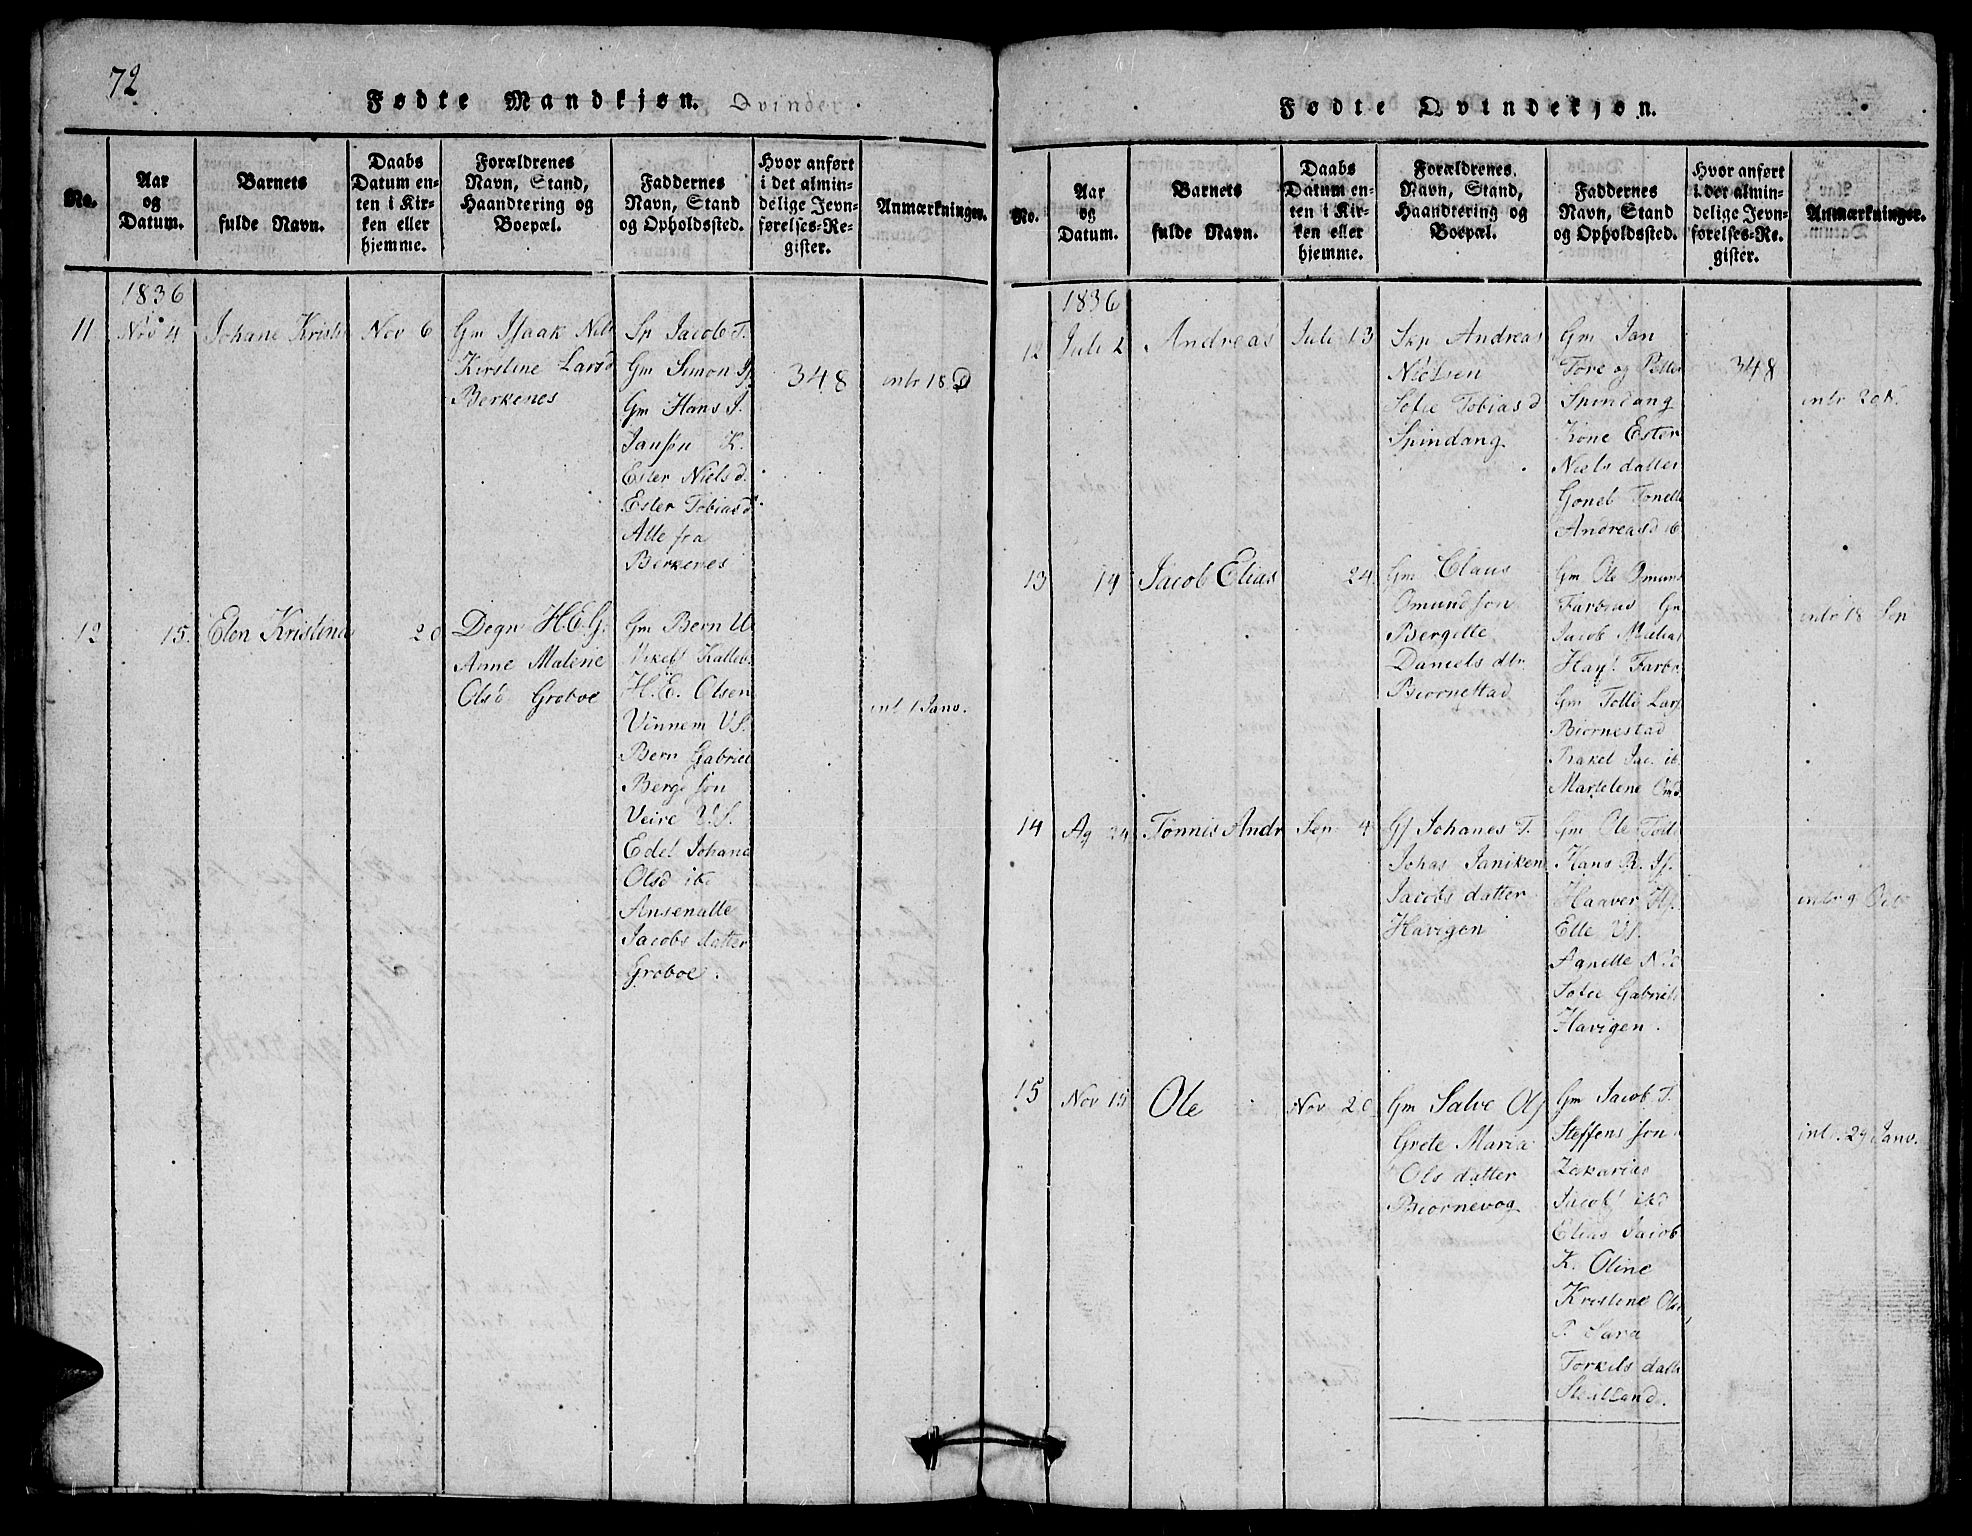 72
Fødte Mandkjøn. Qvinder.
No.
Aar
og
Datum.
Barnets
fulde Navn.
Daabs
Datum en-
ten i Kir-
ken eller
hjemme.
Forældrenes
Navn, Stand,
Haandtering og
Boepæl.
Faddernes
Navn, Stand
og Opholdssted.
Hvor anført
i det almin-
delige Jevn-
førelses-Re-
gister.
Anmærkninger.
1836
11 Nov 4
Johane Kristi
Nov 6
Gm Isaak Niel
Kirstine Larsd
Berkenes
Sp Jacob T.
Gm Simon
Gm Hans J.
Jansøn K.
Ester Niels d.
Ester Tobiasd
Alle fra
Berkenes
348
intr 18 D
12 15.
Elen Kristina
20
Degn H.E.G.
Anne Malene
Olsd Groboe
Gm Bern
H.E. Olsen
Vinnem
Bern Gabriel
Berge søn
Veire
Edel Johane
Olsd
Ansenatte
Jacobs datter
Groboe.
int 1 Janv.
Fødte Qvindekjøn.
No.
Aar
og
Datum.
Barnets
fulde Navn.
Daabs
Datum en-
ten i Kir-
ken eller
hjemme.
Forældrenes
Navn, Stand,
Haandtering og
Boepæl.
Faddernes
Navn, Stand
og Opholdssted.
Hvor anført
i det almin-
delige Jevn-
førelses-Re-
gister.
Anmærkninger.
1836
12 Juli 2
Andreas
Juli 13
Skp Andreas
Nielsen
Sofie Tobias d
Spindang
Gm Jan
Tore og Petter
Spindang
Kone Ester
Niels datter
Tonette
Andreasd
348
intr 20
13 19
Jacob Elias
24
Gm Claus
Omund søn
Bergette
Daniels dtr
Biørnestad
Gm Ole Omund
Jacob
Gm Tolli Lars
Biornestad
Rakel Jac.
intr 18 Sep
14 Ag 24
Tønnis Andr
Sep 4
Johanes T.
Johas Janiken
Jacobs datter
Havigen
Gm Ole
Hans
Haaver
Elle
Agnette
Sofie Gabriels
Havigen.
intr 9 Octo
15 Nov 15
Ole
Nov 20
Gm Salve
Grete Maria
Ols datter
Biornevog
Gm Jacob T.
Steffens søn
Zakarias
Jacob
Elias Jacob
K. Oline
Kristine Ols
P. Sara
Torkils datt
intr. 29 Janv.